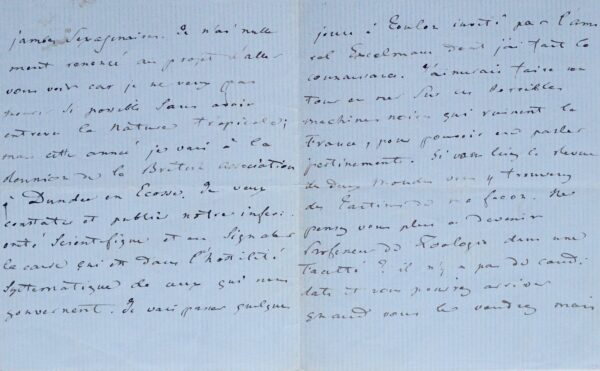 jambes sexagénaires. Je n'ai nulle
ment renoncé au projet d'aller
vous voir car je ne veux pas
mourir si possible sans avoir
entrevu la nature tropicale;
mais cette année je vais à la
réunion de la British association
à Dundee en Ecosse. Je veux
constater et publier notre inferi
orité Scientifique et en signaler
la cause qui est dans l'hostilité
Systematique de ceux qui nous
gouvernent. Je vais passer quelques
jours à Toulon invité par l'ami
ral Excelmans dont j'ai fait la
connaissance. J'aimerais faire un
tour en mer sur ces horribles
machines noires qui ruinent la
France, pour pouvoir en parler
pertinemment. Si vous lisez la revue
des deux mondes vous y trouverez
des articles de ma façon. Ne
pensez vous plus a devenir
Professeur de Zoologie dans une
faculté? il n'y a pas de candi
dats et vous pourrez arriver
quand vous le voudrez mais